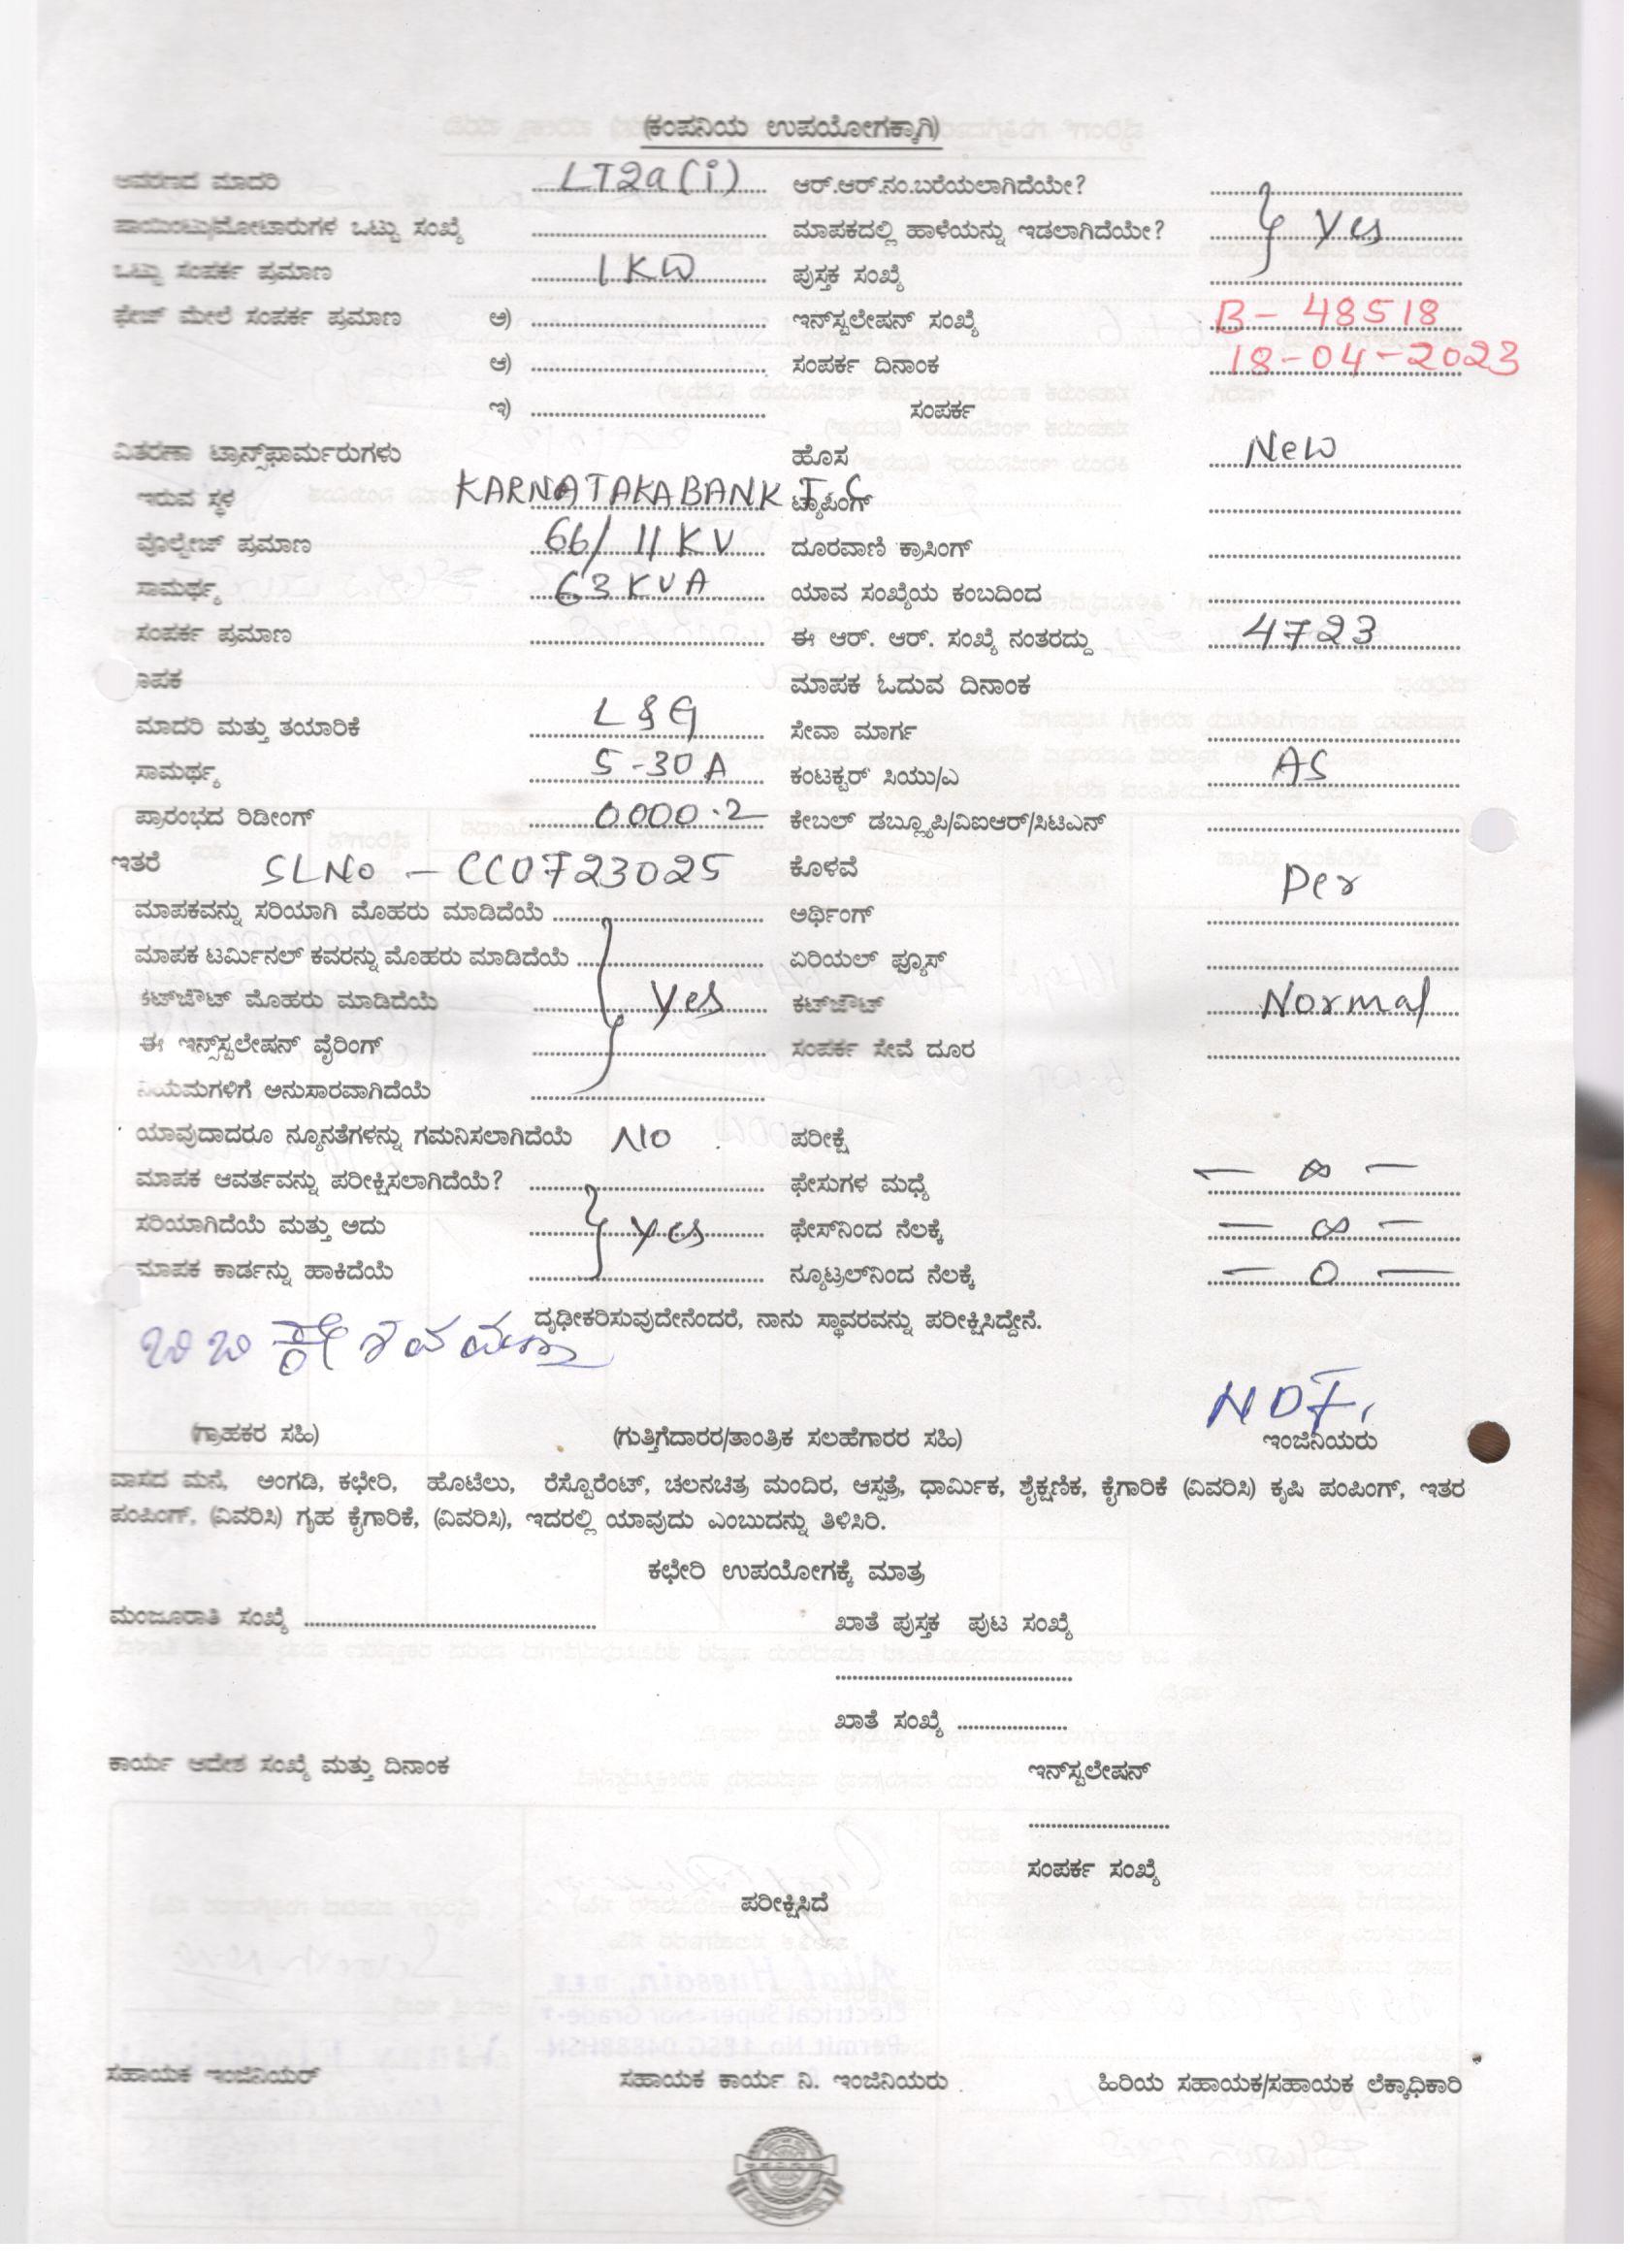 (ಕಂಪನಿಯ ಉಪಯೋಗಕ್ಕಾಗಿ)
ಆವರಣದ ಮಾದರಿ LT2a(i) ಆರ್.ಆರ್.ನಂ.ಬರೆಯಲಾಗಿದೆಯೇ?
ಪಾಯಿಂಟು/ಮೋಟಾರುಗಳ ಒಟ್ಟು ಸಂಖ್ಯೆ ಮಾಪಕದಲ್ಲಿ ಹಾಳೆಯನ್ನು ಇಡಲಾಗಿದೆಯೇ? Yes
ಒಟ್ಟು ಸಂಪರ್ಕ ಪ್ರಮಾಣ 1 KW ಪುಸ್ತಕ ಸಂಖ್ಯೆ
ಫೇಜ್ ಮೇಲೆ ಸಂಪರ್ಕ ಪ್ರಮಾಣ ಅ) ಇನ್‌ಸ್ಟಲೇಷನ್ ಸಂಖ್ಯೆ B - 48518
ಆ) ಸಂಪರ್ಕ ದಿನಾಂಕ 18-04-2023
ಇ) ಸಂಪರ್ಕ
ವಿತರಣಾ ಟ್ರಾನ್ಸ್‌ಫಾರ್ಮರುಗಳು ಹೊಸ New
ಇರುವ ಸ್ಥಳ KARNATAKA BANK T.C ಟ್ಯಾಪಿಂಗ್
ವೊಲ್ಟೇಜ್ ಪ್ರಮಾಣ 66/11 KV ದೂರವಾಣಿ ಕ್ರಾಸಿಂಗ್
ಸಾಮರ್ಥ್ಯ 63 KVA ಯಾವ ಸಂಖ್ಯೆಯ ಕಂಬದಿಂದ
ಸಂಪರ್ಕ ಪ್ರಮಾಣ ಈ ಆರ್. ಆರ್. ಸಂಖ್ಯೆ ನಂತರದ್ದು 4723
ಾಪಕ ಮಾಪಕ ಓದುವ ದಿನಾಂಕ
ಮಾದರಿ ಮತ್ತು ತಯಾರಿಕೆ L&G ಸೇವಾ ಮಾರ್ಗ
ಸಾಮರ್ಥ್ಯ 5-30A ಕಂಟಕ್ಟರ್ ಸಿಯು/ಎ AS
ಪ್ರಾರಂಭದ ರಿಡೀಂಗ್ 0000.2 ಕೇಬಲ್ ಡಬ್ಲ್ಯೂಪಿ/ವಿಐಆರ್/ಸಿಟಿಎನ್
ಇತರೆ SLNo - CC0723025 ಕೊಳವೆ Per
ಮಾಪಕವನ್ನು ಸರಿಯಾಗಿ ಮೊಹರು ಮಾಡಿದೆಯೆ ಅರ್ಥಿಂಗ್
ಮಾಪಕ ಟರ್ಮಿನಲ್ ಕವರನ್ನು ಮೊಹರು ಮಾಡಿದೆಯೆ ಏರಿಯಲ್ ಫ್ಯೂಸ್
ಕಟ್‌ಜೌಟ್ ಮೊಹರು ಮಾಡಿದೆಯೆ Yes ಕಟ್‌ಜೌಟ್ Normal
ಈ ಇನ್ಸ್‌ಸ್ಟಲೇಷನ್ ವೈರಿಂಗ್ ಸಂಪರ್ಕ ಸೇವೆ ದೂರ
ನಿಯಮಗಳಿಗೆ ಅನುಸಾರವಾಗಿದೆಯೆ
ಯಾವುದಾದರೂ ನ್ಯೂನತೆಗಳನ್ನು ಗಮನಿಸಲಾಗಿದೆಯೆ NO ಪರೀಕ್ಷೆ
ಮಾಪಕ ಆವರ್ತವನ್ನು ಪರೀಕ್ಷಿಸಲಾಗಿದೆಯೆ? ಫೇಸುಗಳ ಮಧ್ಯೆ - ∞ -
ಸರಿಯಾಗಿದೆಯೆ ಮತ್ತು ಅದು Yes ಫೇಸ್‌ನಿಂದ ನೆಲಕ್ಕೆ - ∞ -
ಮಾಪಕ ಕಾರ್ಡನ್ನು ಹಾಕಿದೆಯೆ ನ್ಯೂಟ್ರಲ್‌ನಿಂದ ನೆಲಕ್ಕೆ - 0 -
ದೃಢೀಕರಿಸುವುದೇನೆಂದರೆ, ನಾನು ಸ್ಥಾವರವನ್ನು ಪರೀಕ್ಷಿಸಿದ್ದೇನೆ.
(ಗ್ರಾಹಕರ ಸಹಿ) (ಗುತ್ತಿಗೆದಾರರ/ತಾಂತ್ರಿಕ ಸಲಹೆಗಾರರ ಸಹಿ) ಇಂಜಿನಿಯರು
ವಾಸದ ಮನೆ, ಅಂಗಡಿ, ಕಛೇರಿ, ಹೊಟೆಲು, ರೆಸ್ಟೊರೆಂಟ್, ಚಲನಚಿತ್ರ ಮಂದಿರ, ಆಸ್ಪತ್ರೆ, ಧಾರ್ಮಿಕ, ಶೈಕ್ಷಣಿಕ, ಕೈಗಾರಿಕೆ (ವಿವರಿಸಿ) ಕೃಷಿ ಪಂಪಿಂಗ್, ಇತರ
ಪಂಪಿಂಗ್, (ವಿವರಿಸಿ) ಗೃಹ ಕೈಗಾರಿಕೆ, (ವಿವರಿಸಿ), ಇದರಲ್ಲಿ ಯಾವುದು ಎಂಬುದನ್ನು ತಿಳಿಸಿರಿ.
ಕಛೇರಿ ಉಪಯೋಗಕ್ಕೆ ಮಾತ್ರ
ಮಂಜೂರಾತಿ ಸಂಖ್ಯೆ ಖಾತೆ ಪುಸ್ತಕ ಪುಟ ಸಂಖ್ಯೆ
ಖಾತೆ ಸಂಖ್ಯೆ
ಕಾರ್ಯ ಆದೇಶ ಸಂಖ್ಯೆ ಮತ್ತು ದಿನಾಂಕ ಇನ್‌ಸ್ಟಲೇಷನ್
ಸಂಪರ್ಕ ಸಂಖ್ಯೆ
ಪರೀಕ್ಷಿಸಿದೆ
ಸಹಾಯಕ ಇಂಜಿನಿಯರ್ ಸಹಾಯಕ ಕಾರ್ಯ ನಿ. ಇಂಜಿನಿಯರು ಹಿರಿಯ ಸಹಾಯಕ/ಸಹಾಯಕ ಲೆಕ್ಕಾಧಿಕಾರಿ